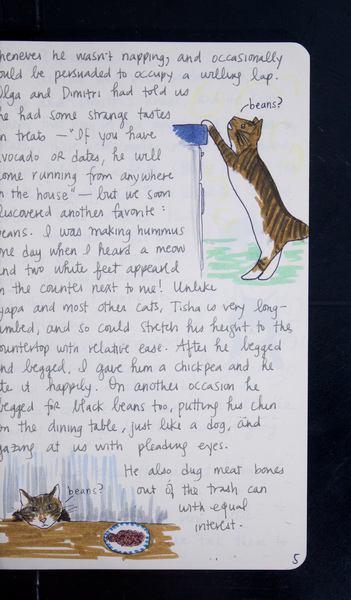 whenever he wasn't napping, and occasionally
could be persuaded to occupy a willing lap.
Olga and Dimitri had told us
he had some strange tastes
in treats — "If you have
avocado OR dates, he will
come running from anywhere
in the house" — but we soon
discovered another favorite:
beans. I was making hummus
one day when I heard a meow
and two white feet appeared
on the counter next to me! Unlike
yapa and most other cats, Tisha is very long-
limbed, and so could stretch his height to the
countertop with relative ease. After he begged
and begged, I gave him a chickpea and he
ate it happily. On another occasion he
begged for black beans too, putting his chin
on the dining table, just like a dog, and
gazing at us with pleading eyes.
He also dug meat bones
out of the trash can
with equal
interest.
beans?
beans?
5